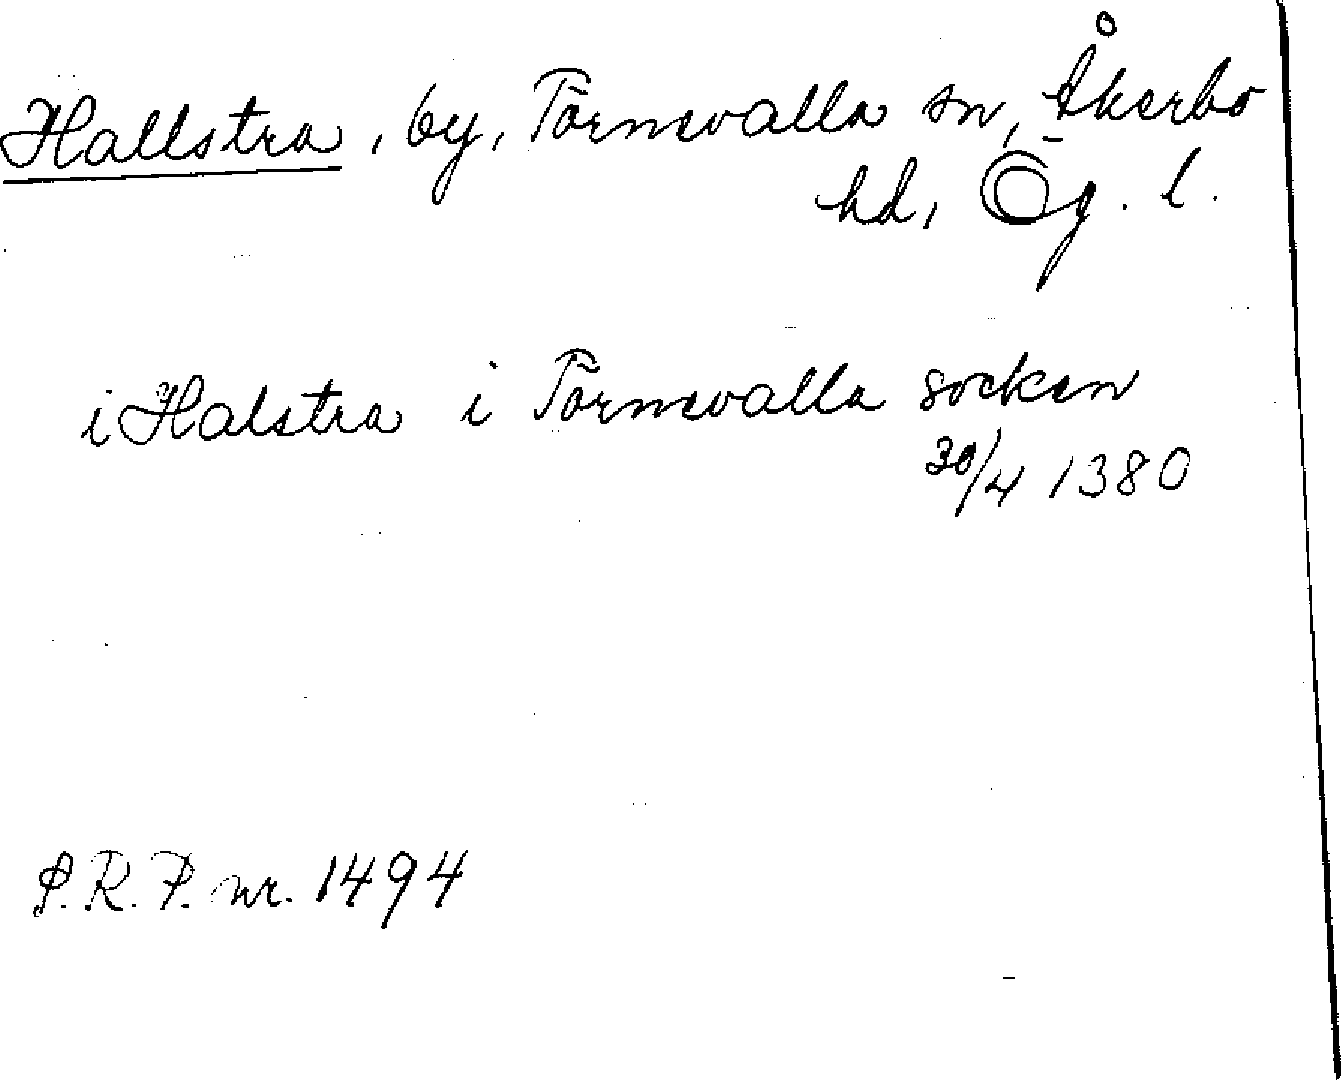 Hallstra, by, Törnevalla sn, Åkerbo
hd, Ög. l.
i Halstra i Törnevalla socken
30/4 1380
S.R.P. nr. 1494